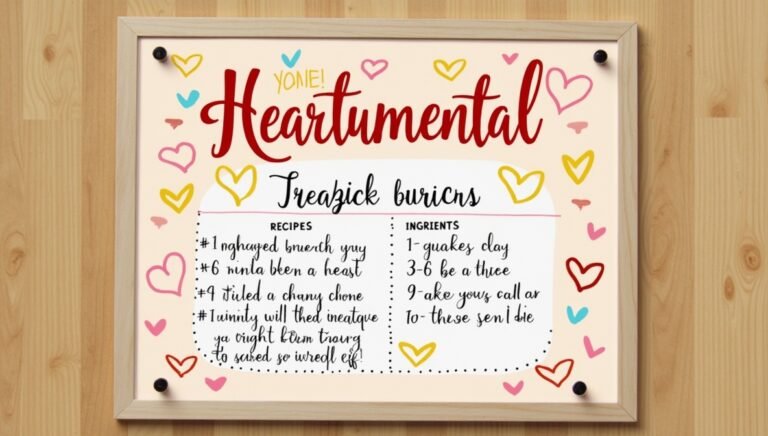 YONE!
Heartumental
Treabzick buricns
RECIPES
#1 nghayed bruerch yuy
#6 minla bleen a heast
#4 jtiled a chany chone
#1uinnty will thed ineatque
ya vright
to scised so
INGRIENTS
1- guakes clay
3-6 be a thice
9-ake yows call ar
10- these sen l die